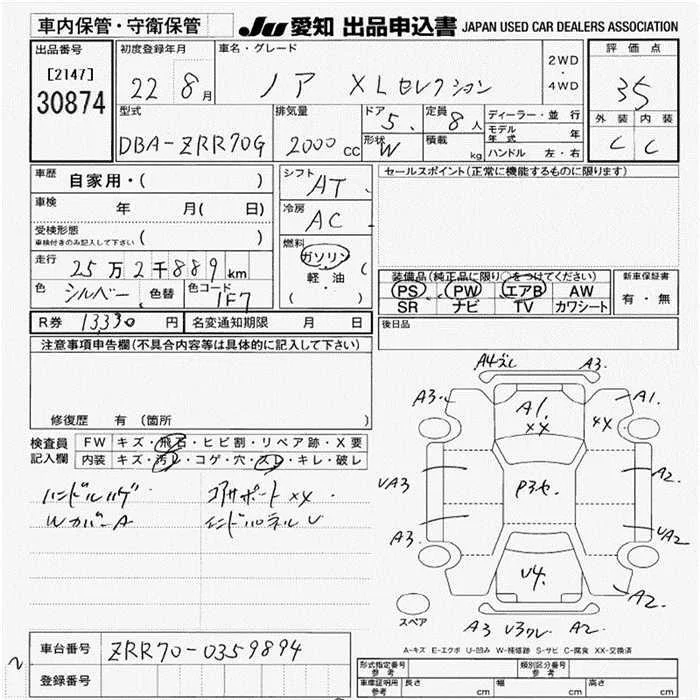 車内保管・守衛保管 JU 愛知 出品申込書 JAPAN USED CAR DEALERS ASSOCIATION
出品番号 初度登録年月 車名・グレード 2WD・4WD 評価点
[2147] 30874 22 8月 ノア XLセレクション 35
型式 排気量 ドア 定員 ディーラー・並行 外装 内装
DBA-ZRR70G 2000cc 5 8人 モデル年式 年 C C
形状 W 積載 kg ハンドル 左・右
車歴 自家用・( ) シフト AT セールスポイント(正常に機能するものに限ります)
車検 年 月( 日) 冷房 AC
受検形態 車検付きのみ記入して下さい ( ) 燃料 ガソリン
走行 25万2千889km 軽油 装備品(純正品に限り○をつけてください) 新車保証書
色 シルバー 色替 色コード 1F7 ( ・ ) PS PW エアB AW 有・無
SR ナビ TV カワシート
R券 13,330円 名変通知期限 月 日 後日品
注意事項申告欄(不具合内容等は具体的に記入して下さい)
修復歴 有 (箇所 )
検査員記入欄 FW キズ・飛石・ヒビ割・リペア跡・X要
内装 キズ・汚レ・コゲ・穴・スレ・キレ・破レ
ハンドルハゲ コアサポートXX
Wカバー A インドパネル U
A4ズレ A3
A3 A1 XX XX A1
UA3 P3セ A2
A3 UA2
U4 A2
スペア A3 U3ワレ A2
A-キズ E-エクボ U-凹み W-補修跡 S-サビ C-腐食 XX-交換済
車台番号 ZRR70-0359894 形式指定番号 参考 類別区分番号 参考
登録番号 車庫証明用 参考 長さ cm 幅 cm 高さ cm